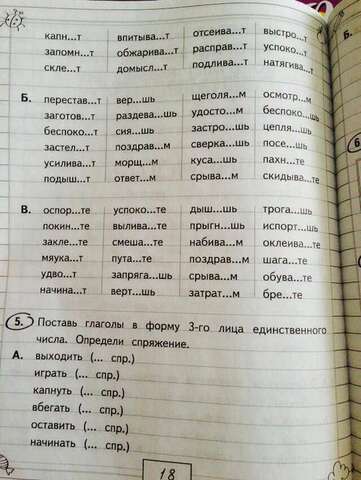 капн...т впитыва...т отсеива...т выстро...т
запомн...т обжарива...т расправ...т успоко...т
скле...т домысл...т подлива...т натягива...т
Б. перестав...т вер...шь щеголя...м осмотр...м
заготов...т раздева...шь удосто...м беспоко...шь
беспоко...т сия...шь застро...шь цепля...шь
застел...т поздрав...м сверка...шь посе...шь
усилива...т морщ...м куса...шь пахн...те
подыш...т ответ...м срыва...м скидыва...те
В. оспор...те успоко...те дыш...шь трога...шь
покин...те вылива...те прыгн...шь испорт...шь
закле...те смеша...те набива...м оклеива...те
мяука...т пута...те поздрав...м шага...те
удво...т запряга...шь срыва...м обува...те
начина...т верт...шь затрат...м бре...те
5. Поставь глаголы в форму 3-го лица единственного
числа. Определи спряжение.
А. выходить (... спр.)
играть (... спр.)
капнуть (... спр.)
вбегать (... спр.)
оставить (... спр.)
начинать (... спр.)
18
Б.
6